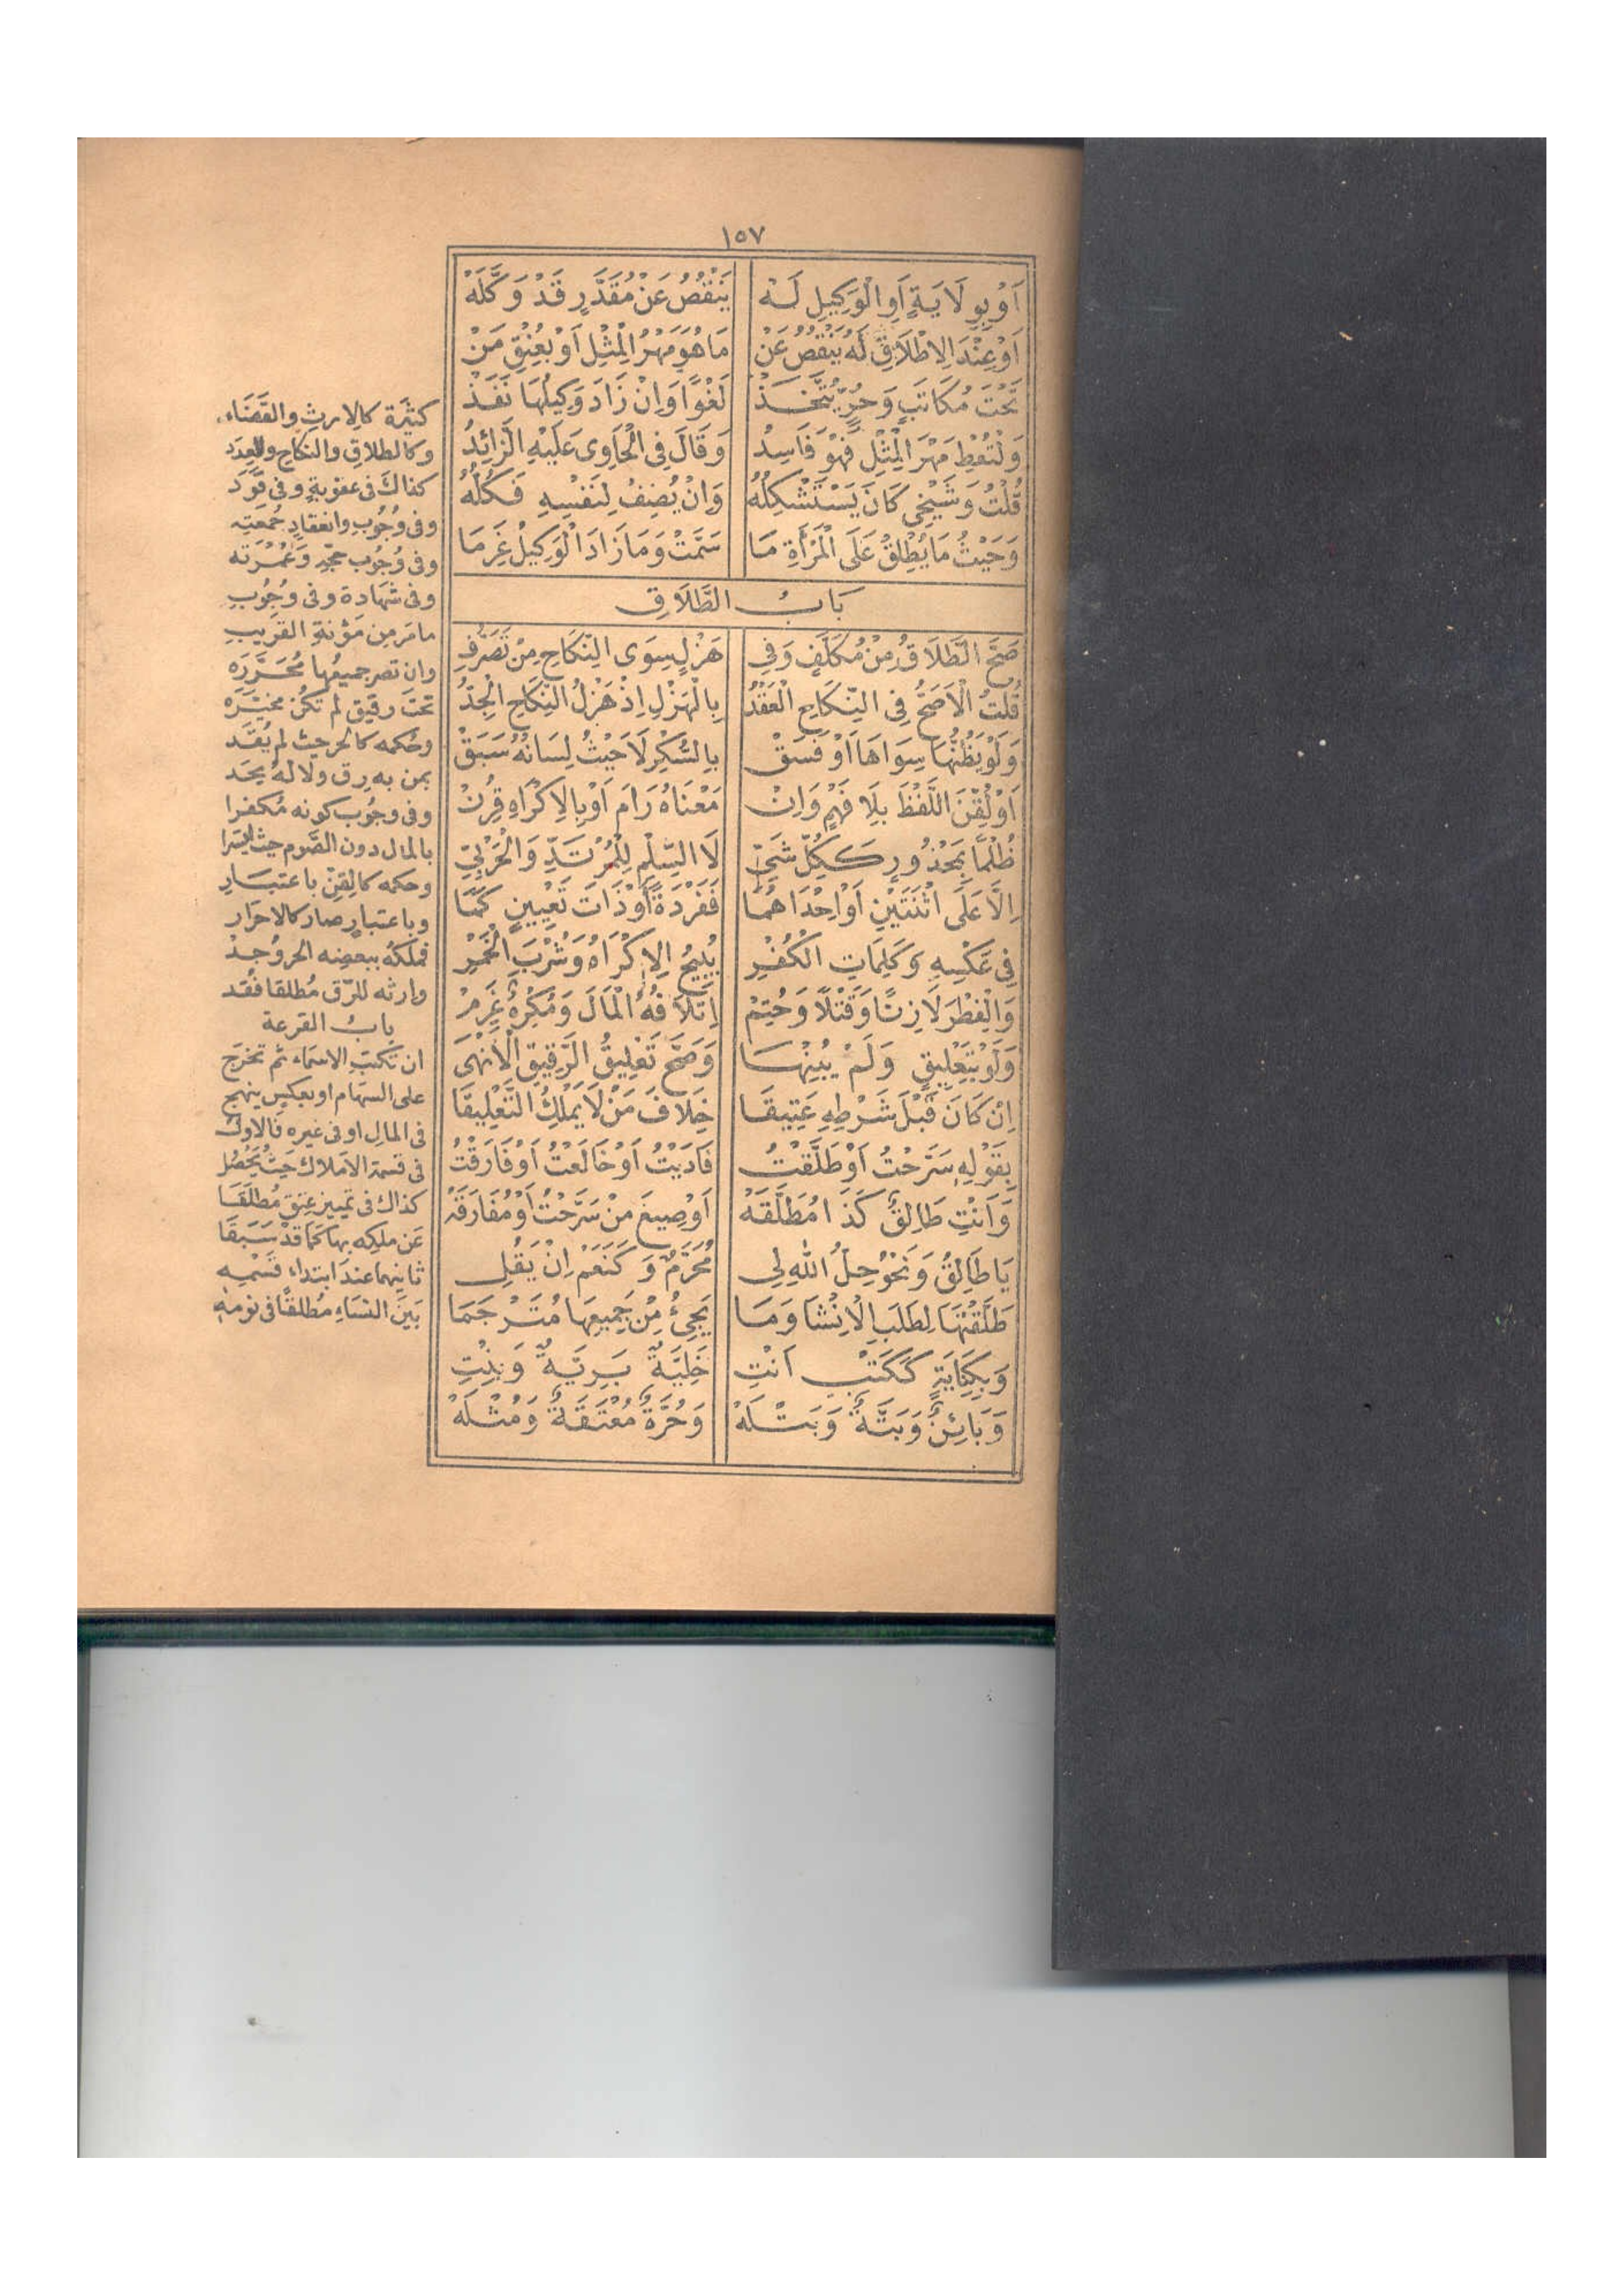 ١٥٧
اَوْ بِوِلَايَةٍ اَوِ الْوَكِيلِ لَهْ يَنْقُصُ عَنْ مُقَدَّرٍ قَدْ وَكَّلَهْ
اَوْ عِنْدَ الاِطْلَاقِ لَهُ يَنْقُصُ عَنْ مَا هُوَ مَهْرُ الْمِثْلِ اَوْ يُعْتِقُ مَنْ
تَحْتَ مُكَاتَبٍ وَحُرٍّ يُتَّخَذْ لَغْوًا وَاِنْ زَادَ وَكِيلُهَا نَفَذْ
وَلْتُعْطِ مَهْرَ الْمِثْلِ فَهْوَ فَاسِدُ وَقَالَ فِى الْحَاوِى عَلَيْهِ الزَّائِدُ
قُلْتُ وَشَيْخِى كَانَ يَسْتَشْكِلُهُ وَاِنْ يُضِفْ لِنَفْسِهِ فَكُلُّهُ
وَحَيْثُ مَا يُطْلِقْ عَلَى الْمَرْأَةِ مَا سَمَّتْ وَمَا زَادَ الْوَكِيلُ غَرِمَا
بَابُ الطَّلَاقِ
صَحَّ الطَّلَاقُ مِنْ مُكَلَّفٍ وَفِى هَزْلٍ سِوَى النِّكَاحِ مِنْ تَصَرُّفِ
قُلْتُ الْاَصَحُّ فِى النِّكَاحِ الْعَقْدُ بِالْهَزْلِ اِذْ هَزْلُ النِّكَاحِ الْجِدُّ
وَلَوْ يَظُنُّهَا سِوَاهَا اَوْ فَسَقْ بِالسُّكْرِ لَا حَيْثُ لِسَانُهُ سَبَقْ
اَوْ لُقِّنَ اللَّفْظَ بِلَا فَهْمٍ وَاِنْ مَعْنَاهُ رَامَ اَوْ بِالِاكْرَاهِ قُرِنْ
ظُلْمًا بِمَحْذُورٍ كَكُلِّ شَىِّ لَا السِّلْمِ لِلْمُرْتَدِّ وَالْحَرْبِىِّ
اِلَّا عَلَى اثْنَتَيْنِ اَوْ اِحْدَاهُمَا فَفَرْدَةً اَوْ ذَاتَ تَعْيِينٍ كَمَا
فِى عَكْسِهِ وَكَلِمَاتِ الْكُفْرِ يُبِيحُ الِاكْرَاهُ وَشُرْبَ الْخَمْرِ
وَالْفِطْرَ لَا زِنًا وَقَتْلًا وَحُتِمْ اِتْلَافُهُ الْمَالَ وَمُكْرِهٌ غَرِمْ
وَلَوْ بِتَعْلِيقٍ وَلَمْ يُبِنْهَا وَصَحَّ تَعْلِيقُ الرَّقِيقِ الْاَنْهَى
اِنْ كَانَ قَبْلَ شَرْطِهِ عَتِيقَا خِلَافَ مَنْ لَا يَمْلِكُ التَّعْلِيقَا
بِقَوْلِهِ سَرَّحْتُ اَوْ طَلَّقْتُ فَادَيْتُ اَوْ خَالَعْتُ اَوْ فَارَقْتُ
وَاَنْتِ طَالِقٌ كَذَا مُطَلَّقَهْ اَوْ صِيغَ مِنْ سَرَّحْتُ اَوْ مُفَارَقَهْ
يَا طَالِقُ وَنَحْوُ حِلُّ اللهِ لِى مُحَرَّمٌ وَكَنَعَمْ اِنْ يَقُلِ
طَلَّقْتَهَا لِطَلَبِ الْاِنْشَا وَمَا يَجِىْءُ مِنْ جَمِيعِهَا مُتَرْجَمَا
وَبِكِنَايَةٍ كَكَتْبِ اَنْتِ خَلِيَّةٌ بَرِيَّةٌ وَبِنْتِ
وَبَائِنٌ وَبَتَّةٌ وَبَتْلَهْ وَحُرَّةٌ مُعْتَقَةٌ وَمُثْلَهْ
كثيرَة كالارثِ والقَضَاء
وكالطلاقِ والنكاحِ والعِدَد
كذاكَ فى عقوبةٍ وفى قَوَد
وفى وُجُوبِ وانعقادِ جُمعتِه
وفى وُجُوب حجّهِ وَعُمْرَته
وفى شهادة وفى وجُوبِ
مامَر من مَؤنةِ القريبِ
وان تصر جميعُها مُحَرَّرَه
تحتَ رقيق لم تكُن مخيّرَه
وحُكمه كالحر حيث لم يُقَد
بمن به رق ولا لهُ يحَد
وفى وجُوب كونه مُكفرا
بالمال دون الصَّوم حيث ايسَرا
وحكمه كالقِنّ باعتبَارِ
وباعتبارٍ صار كالاحرَار
فملكهُ ببعضِه الحر وُجدْ
وارثه للرّق مُطلقا فُقد
بابُ القرعة
ان تكتب الاسمَاء ثم تخرَج
على السهَام او بعكسٍ ينهج
فى المالِ او فى غيره فالاوّل
فى قسمة الاملاك حَيثُ يَحْصُل
كذاك فى تمييز عِتقٍ مُطلَقَا
عَن ملكِه بها كَمَا قدْ سَبَقَا
ثانيهما عندَ ابتداءِ قَسْمِه
بَينَ النسَاءِ مُطلقًا فى نومهِ